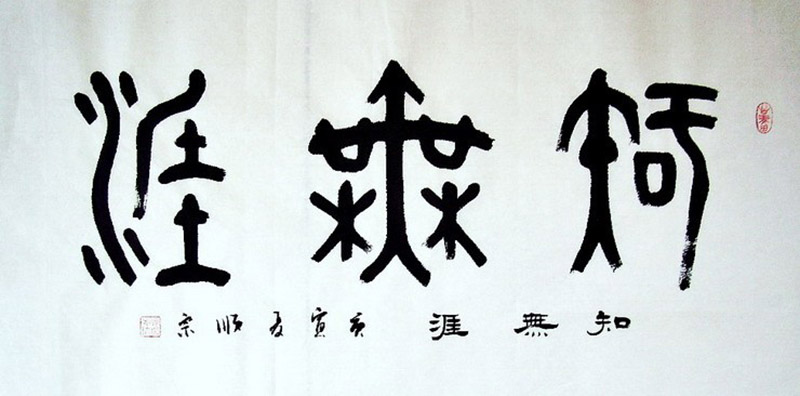 知無涯
知無涯 庚寅夏順宗